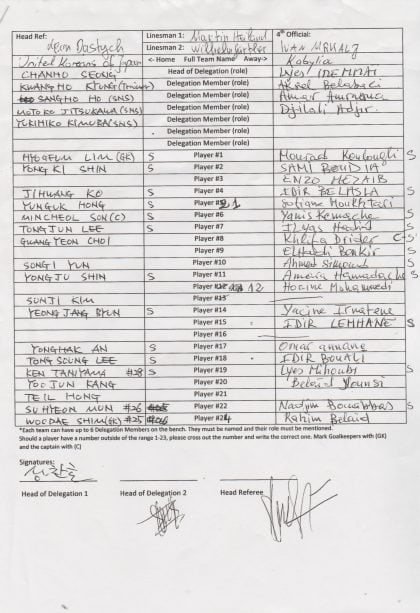 Head Ref: Dean Dastych Linesman 1: Martin 4th Official: IVAN
Linesman 2:
United Koreans of Japan <- Home Full Team Name Away-> Kabylia
CHANHO SEONG Head of Delegation (role) Lyes IMMAI
KWANGHO KYUNG Delegation Member (role) Aksel Belabaci
SANGHO HO (SNS) Delegation Member (role) Amar
MOTOKO JITSUKAWA (SNS) Delegation Member (role) Djilali
YUKIHIKO KIMURA (SNS) Delegation Member (role)
Delegation Member (role)
MYOGEUM LIM (GK) S Player #1 Mourad S
YONG KI SHIN S Player #2 SAMI BOUDIA
Player #3 ENZO MEZAIB
JIHUANG KO S Player #4 IDIR BELASLA S
YUNGUK HONG S Player #21 Sofiane Moukhtari
MINCHEOL SON (C) S Player #6 Yanis Kemache S
TONGJUN LEE S Player #7 ILyas S
GWANG YEON CHOI Player #8 Khlifa Drider C-S
Player #9 ElHadi Bonkir S
SONGI YUN Player #10 Ahmed
YONGJU SHIN S Player #11 Amezia Hamadache S
Player 12 Hocine Mohammedi
SUNJI KIM Player #13
YEONG JANG BYUN S Player #14 Yacine
Player #15 IDIR LEMHANE S
Player #16
YONGHAK AN S Player #17 Omar
TONG SOUNG LEE S Player #18 IDIR BOUALI
KEN TANIYAMA #28 S Player #19 Lyes Mihoubi S
YOO JUN KANG Player #20 Belaid Younsi
TE IL HONG Player #21
SUHYEON MUN #26 Player #22 Nadjim Bouabbas S
WOODAE SHIM (GK) #25 Player #24 Rahim Belaid
*Each team can have up to 6 Delegation Members on the bench. They must be named and their role must be mentioned.
Should a player have a number outside of the range 1-23, please cross out the number and write the correct one. Mark Goalkeepers with (GK)
and the captain with (C)
Signatures:
Head of Delegation 1 Head of Delegation 2 Head Referee